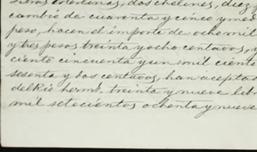 esterlinas, dos chelines, diez y
cambio de cuarenta y cinco y med
peso, hacen el importe de ocho mil
y tres pesos treinta y ocho centavos, y
ciento cincuenta y un mil ciento
sesenta y dos centavos, han aceptado
del Rio herms. treinta y nueve lib
mil setecientos ochenta y nueve